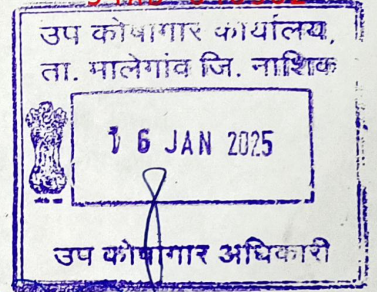 उप कोषागार कार्यालय,
ता. मालेगांव जि. नाशिक
16 JAN 2025
उप कोषागार अधिकारी